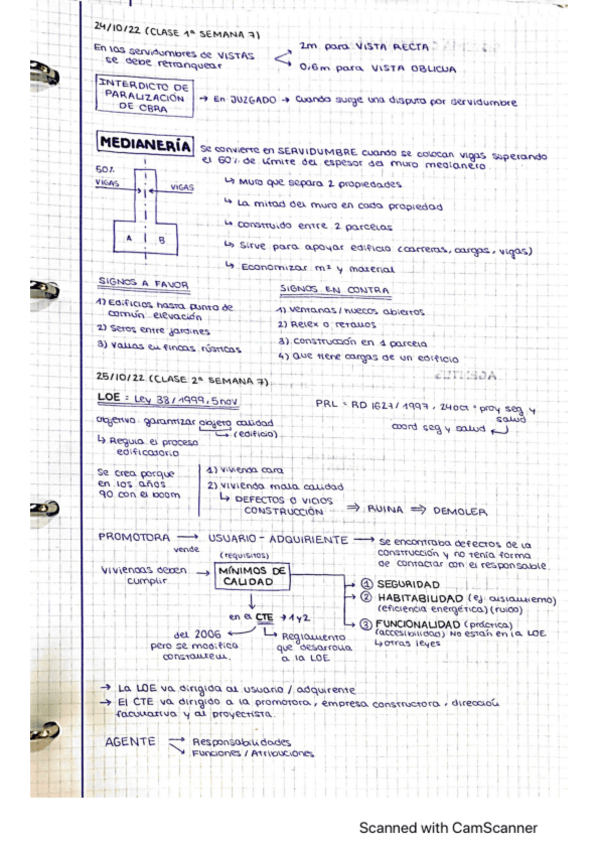 24/10/22 (CLASE 1ª SEMANA 7)
En las servidumbres de VISTAS
se debe retranquear
2m para VISTA RECTA
0,6m para VISTA OBLICUA
INTERDICTO DE
PARALIZACIÓN
DE OBRA
→ En JUZGADO → Cuando surge una disputa por servidumbre
MEDIANERÍA
Se convierte en SERVIDUMBRE cuando se colocan vigas superando
el 60% de límite del espesor del muro medianero
50%
VIGAS
VIGAS
A
B
↳ Muro que separa 2 propiedades
↳ La mitad del muro en cada propiedad
↳ Construido entre 2 parcelas
↳ Sirve para apoyar edificio (carreras, cargas, vigas)
↳ Economizar m² y material
SIGNOS A FAVOR
1) Edificios hasta punto de
común elevación
2) Setos entre jardines
3) Vallas en fincas rústicas
SIGNOS EN CONTRA
1) Ventanas/huecos abiertos
2) Relex o retallos
3) Construcción en 1 parcela
4) Que tiene cargas de un edificio
25/10/22 (CLASE 2ª SEMANA 7)
LOE = Ley 38/1999, 5nov
PRL = RD 1627/1997, 24oct → proy seg y
salud
coord seg y salud
Objetivo: garantizar objeto calidad
(edificio)
↳ Regula el proceso
edificatorio
Se crea porque
en los años
90 con el boom
1) Vivienda cara
2) Vivienda mala calidad
↳ DEFECTOS O VICIOS
CONSTRUCCIÓN
⇒ RUINA ⇒ DEMOLER
PROMOTORA → USUARIO - ADQUIRIENTE → se encontraba defectos de la
construcción y no tenía forma
de contactar con el responsable.
vende
(requisitos)
Viviendas deben
cumplir
→ MÍNIMOS DE
CALIDAD
① SEGURIDAD
② HABITABILIDAD (ej. aislamiento)
(eficiencia energética) (ruido)
③ FUNCIONALIDAD (práctica)
(accesibilidad) No están en la LOE
↳ otras leyes
en el CTE → 1 y 2
del 2006
pero se modifica
constantem.
↳ Reglamento
que desarrolla
a la LOE
→ La LOE va dirigida al usuario / adquirente
→ El CTE va dirigido a la promotora, empresa constructora, dirección
facultativa y al proyectista.
AGENTE
→ Responsabilidades
→ Funciones / Atribuciones
Scanned with CamScanner